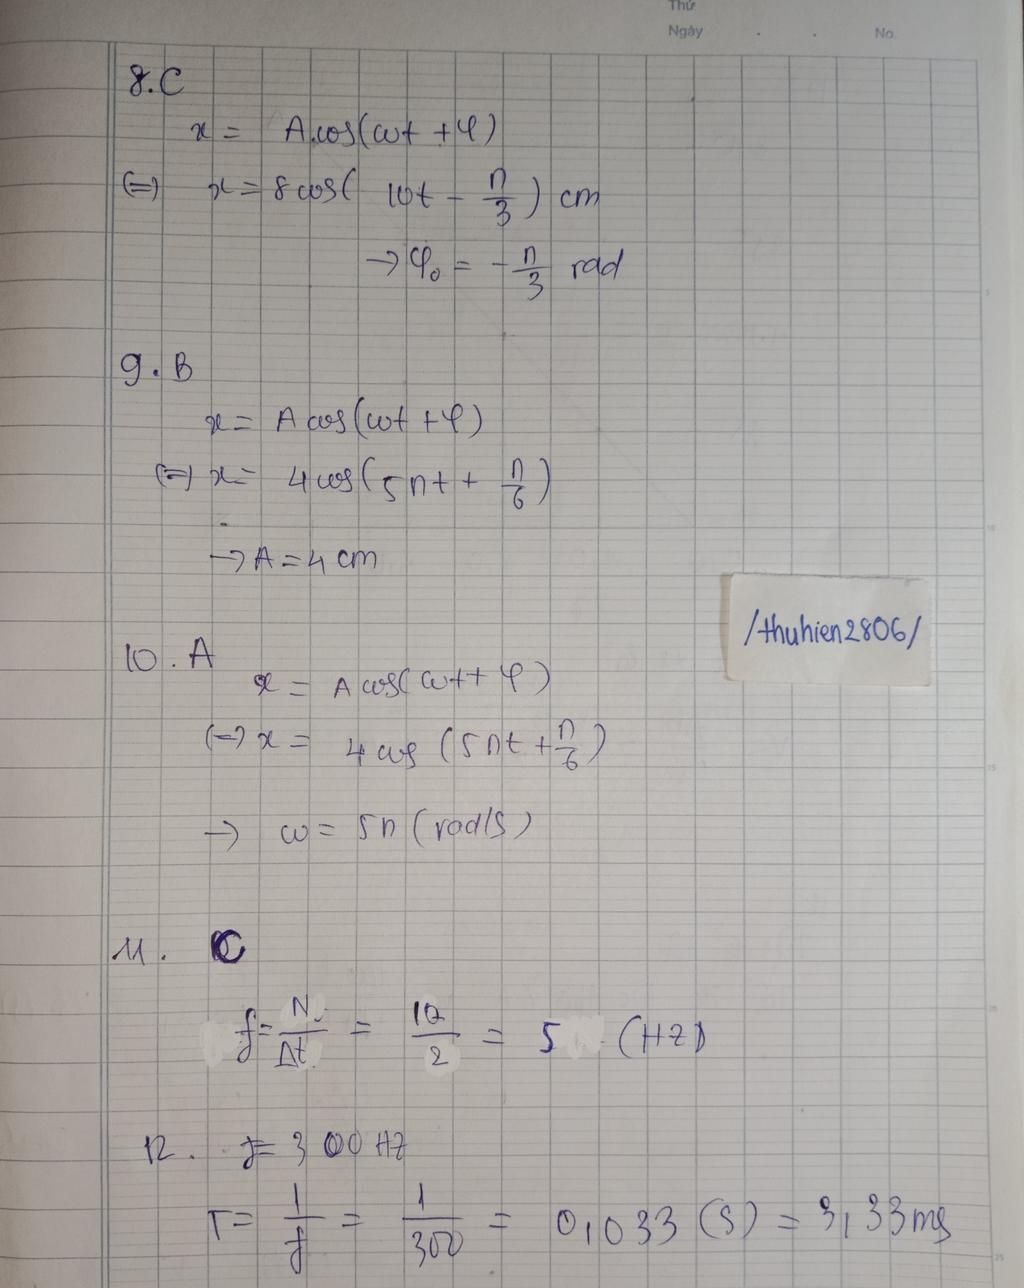 Thứ
Ngày . . No.
8. C
x = A.cos(ωt + φ)
(=) x = 8 cos( 10t - π/3 ) cm
→ φ₀ = - π/3 rad
9. B
x = A cos(ωt + φ)
(=) x = 4 cos(5πt + π/6)
→ A = 4 cm
/thuhien2806/
10. A
x = A cos(ωt + φ)
(=) x = 4 cos (5πt + π/6)
→ ω = 5π (rad/s)
11. C
f = N/Δt = 10/2 = 5 (HZ)
12. f = 300 HZ
T = 1/f = 1/300 = 0,033 (S) = 3,33 ms